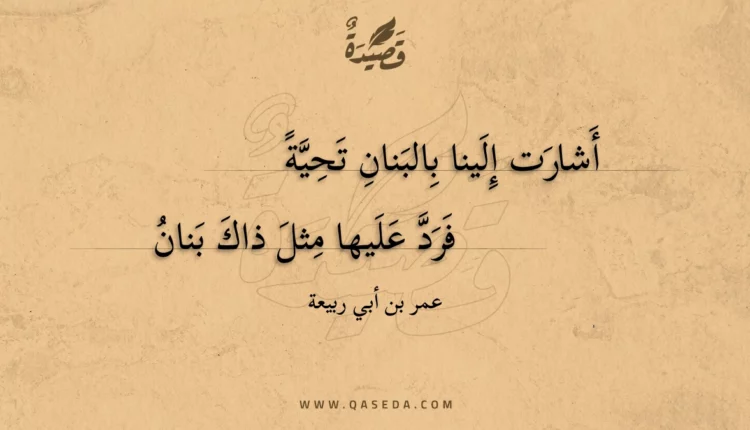 قَصِيْدَةٌ
أَشارَت إِلَينا بِالبَنانِ تَحِيَّةً
فَرَدَّ عَلَيها مِثلَ ذاكَ بَنانُ
عمر بن أبي ربيعة
WWW.QASEDA.COM